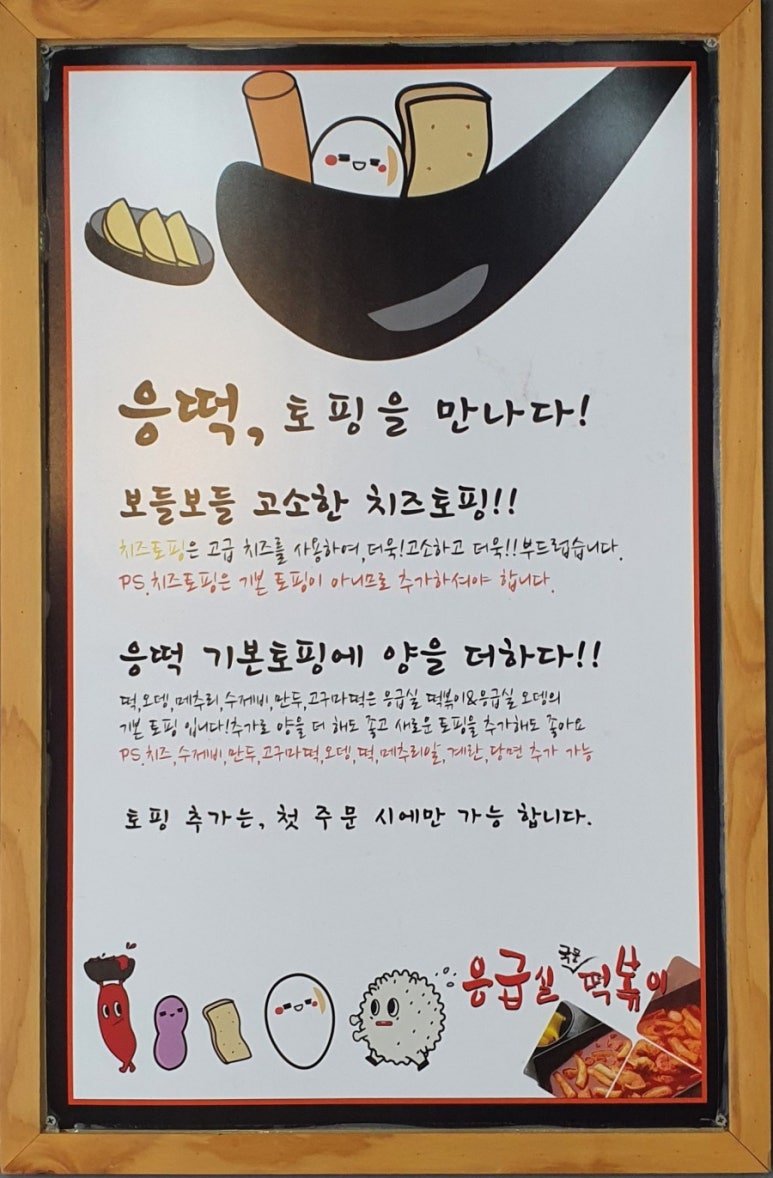 응떡, 토핑을 만나다!
보들보들 고소한 치즈토핑!!
치즈토핑은 고급 치즈를 사용하여,더욱!고소하고 더욱!!부드럽습니다.
PS.치즈토핑은 기본 토핑이 아니므로 추가하셔야 합니다.
응떡 기본토핑에 양을 더하다!!
떡,오뎅,메추리,수제비,만두,고구마떡은 응급실 떡볶이&응급실 오뎅의
기본 토핑 입니다!추가로 양을 더 해도 좋고 새로운 토핑을 추가해도 좋아요
PS.치즈,수제비,만두,고구마떡,오뎅,떡,메추리알,계란,당면 추가 가능
토핑 추가는, 첫 주문 시에만 가능 합니다.
응급실 국물 떡볶이